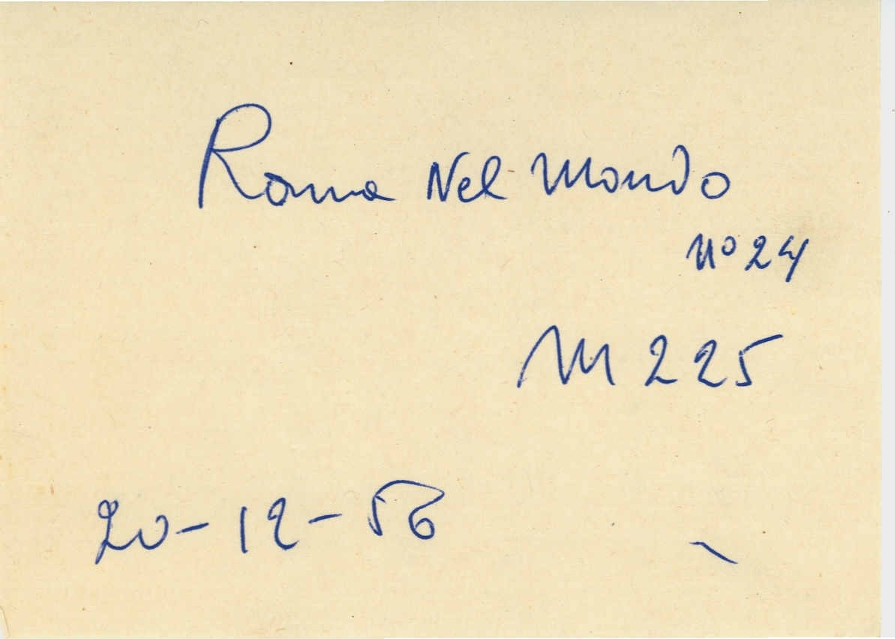 Roma Nel Mondo
n° 24
M 225
20-12-56